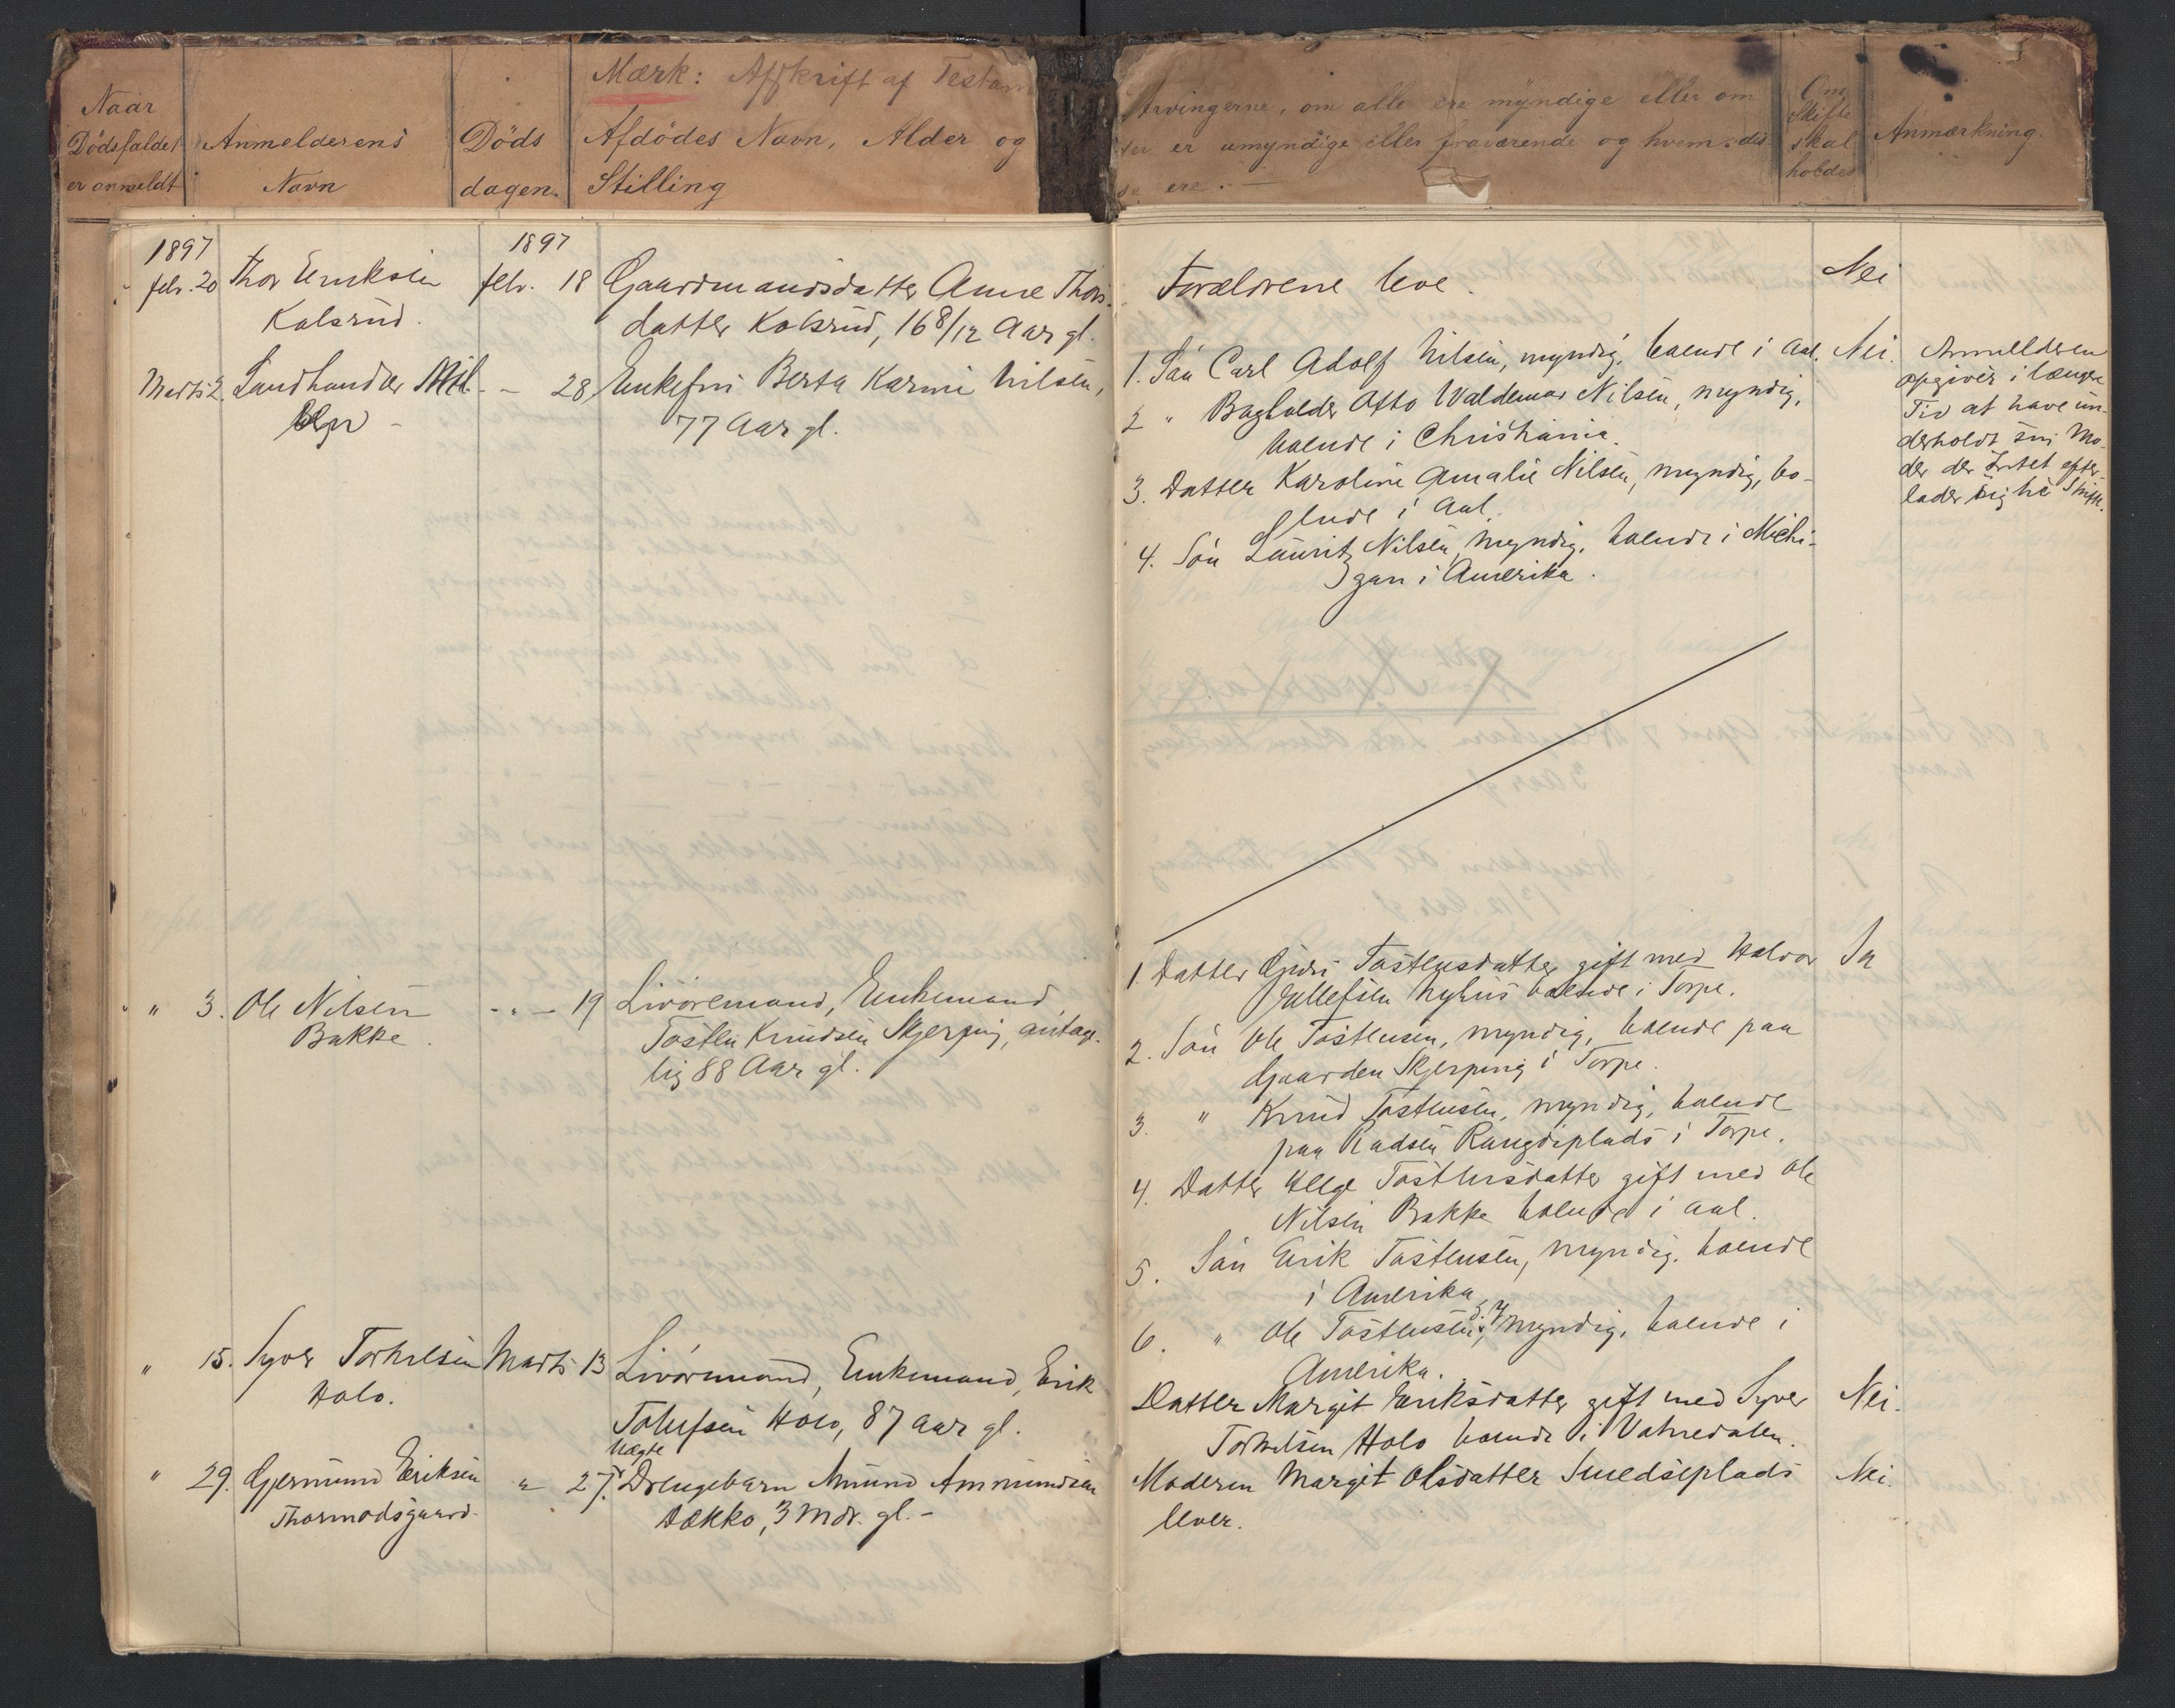 Mærk: Afskrift af Testam
Naar
Dödsfaldet
er anmeldt
Anmelderens
Navn
Döds
dagen.
Afdödes Navn, Alder og
Stilling
Arvingerne, om alle ere myndige eller om
er umyndige eller fraværende og hvem dis
se ere. —
Om
Skifte
skal
holdes
Anmærkning.
1897
febr. 20
Thor Eriksen
Kolsrud.
1897
febr. 18
Gaardmandsdatter Anne Thors-
datter Kolsrud, 16 8/12 Aar gl.
Forældrene leve.
Nei
Marts 2.
Landhandler
- — 28
Enkefru Berta Karine Nilsen,
77 Aar gl.
1. Sön Carl Adolf Nilsen, myndig, boende i Aal.
2 " Bogholder Otto Waldemar Nilsen, myndig,
boende i Christiania.
3. Datter Karoline Amalie Nilsen, myndig, bo-
ende i Aal.
4. Sön Lauritz Nilsen, myndig, boende i Michi-
gan i Amerika.
Nei.
Anmelderen
opgiver i længere
Tid at have un-
derholdt sin Mo-
der der Intet efter-
lader sig til Skifte.
" " 3.
Ole Nilsen
Bakke.
- " — 19
Livöremand, Enkemand
Tosten Knudsen Skjerping, antage-
lig 88 Aar gl.
1. Datter Guri Tostensdatter gift med Halvor
Ellefsen Nyhus boende i Torpe.
2. Sön Ole Tostensen, myndig, boende paa
Gaarden Skjerping i Torpe.
3. " Knud Tostensen, myndig, boende
paa Rudsen Rangdiplads i Torpe.
4. Datter Helge Tostensdatter gift med Ole
Nilsen Bakke boende i Aal.
5. Sön Erik Tostensen, myndig, boende
i Amerika
6. " Ole Tostensen d. y. myndig, boende i
Amerika.
Ja
" 15.
Syver Torkelsen
Holo.
Marts 13
Livöremand, Enkemand, Erik
Tolefsen Holo, 87 Aar gl.
Datter Margit Eriksdatter gift med Syver
Torkelsen Holo boende i Vatnedalen.
Nei.
" 29.
Gjermund Eriksen
Thormodsgaard.
" 27.
Uægte
Drengebarn Amund Ammundsen
Dokko, 3 Mdr. gl. -
Moderen Margit Olsdatter Smedsplads
lever.
Nei.